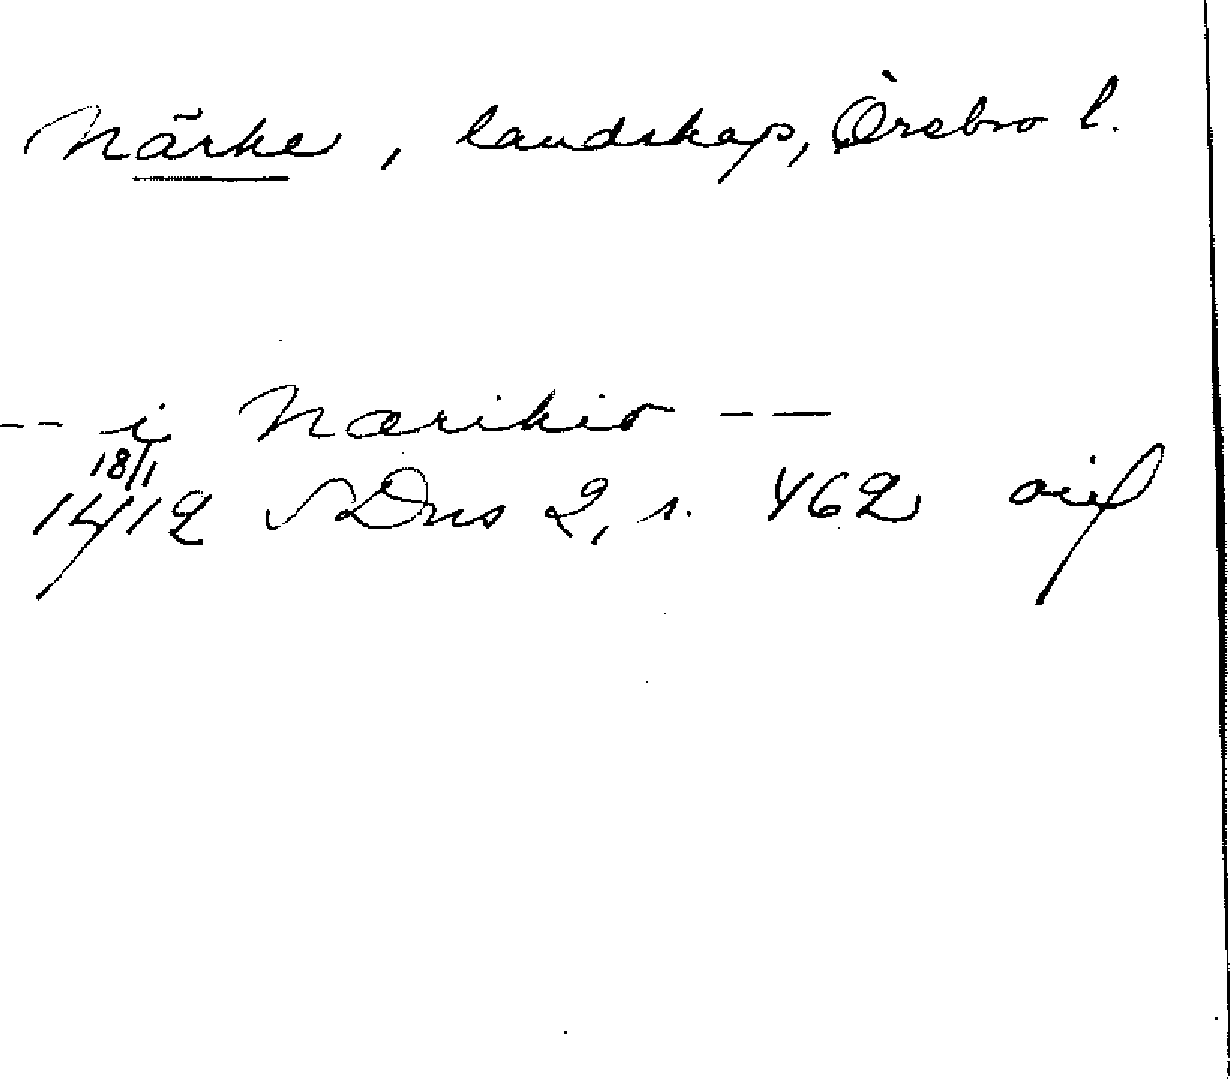 Närke, landskap, Örebro l.
-- i Nærikio --
18/1
1412 SDns 2, s. 462 orig